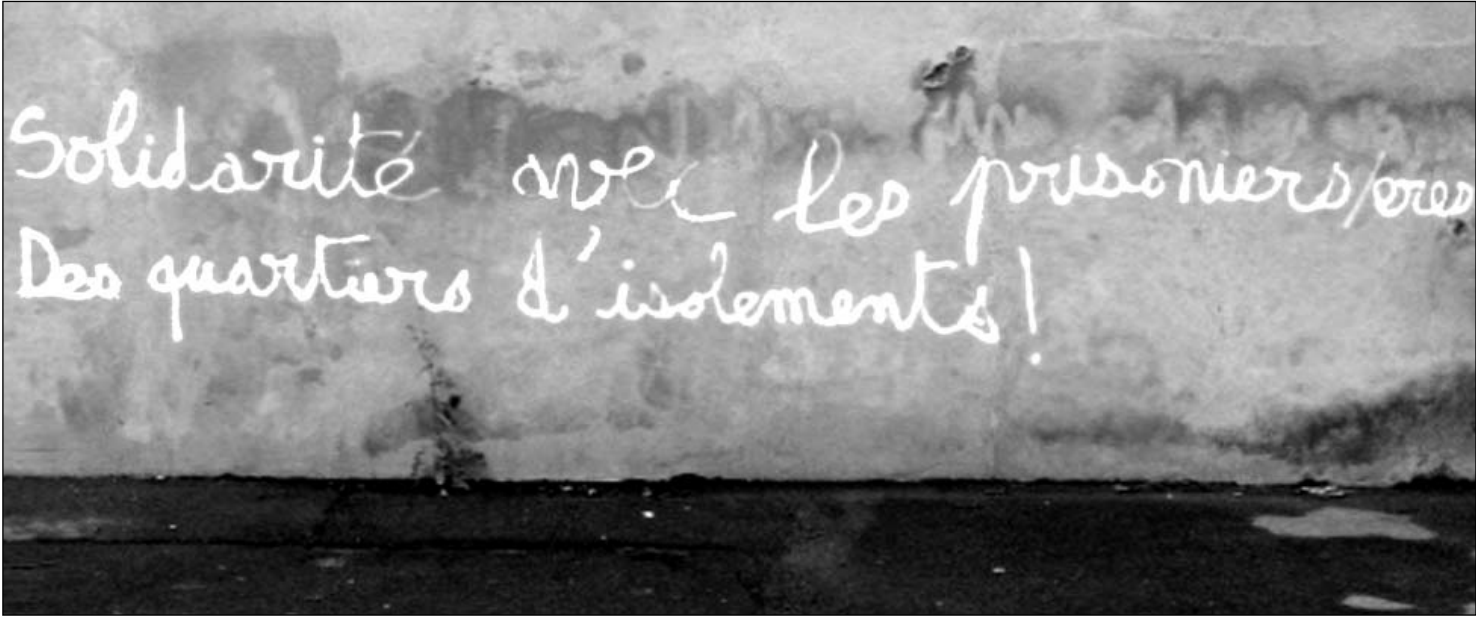 Solidarité avec les prisoniers/eres
Des quartiers d'isolements!